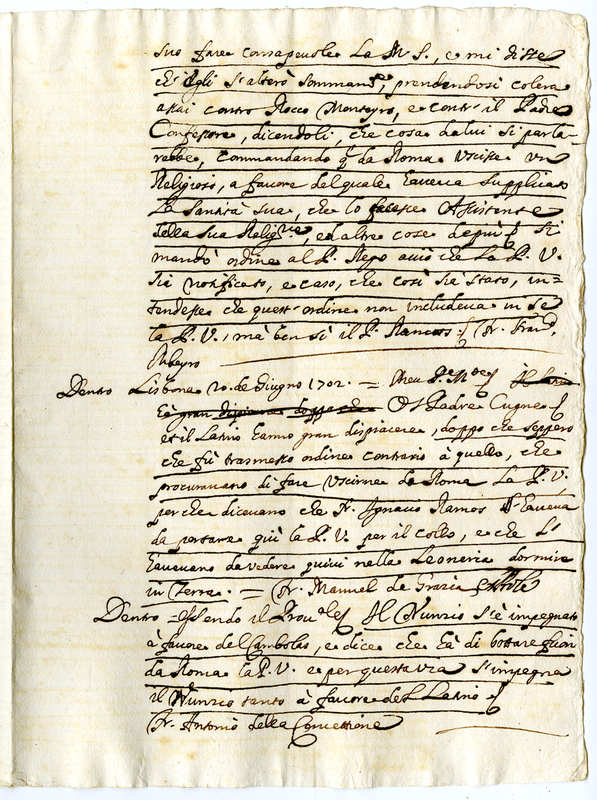 suo fare consapeuole La M S., e mi disse
ch'egli s'alterò sommam.te, prendendosi colera
assai contro Rocco Monteyro, e contr' il Padre
Confessore, dicendoli, che cosa da lui si parla-
rebbe, Commandando q.l da Roma Uscisse un
Religioso, a fauore del quale haueua supplicato
La Santità Sua, che lo facesse Assistente
della sua Relig.ne, ed altre cose. De quì si
mandò ordine al P. auiò che La P. V.
sia notificato, e caso, che così sia stato, in=
tendesse che quest' ordine non includeua in se
la P. V., mà ben sì il P. Ramos. Fr. Fran.co
Ribeyro
Dentro Lisbona 20. de Giugno 1702. =
hà gran dispiacere doppo che Il Padre Cugne
et il Latino hanno gran dispiacere, doppo che seppero
che fù trasmesso ordine contrario à quello, che
procurauano di fare Uscirne da Roma La P. V.
perche diceuano che Fr. Ignacio Ramos l'haueua
da portare quì la P. V. per il collo, e che L'
haueuano da vedere quiui nella Leoneria dormire
in Terra. = Fr. Manuel de Grazia
Dentro = Essendo il Prou.le Il Nunzio s'è impegnato
à fauore del Cambolas, e dice che hà di bottare fuori
da Roma la P. V. e per questa via s'impegna
il Nunzio tanto à fauore del Latino
Fr. Antonio della Concettione